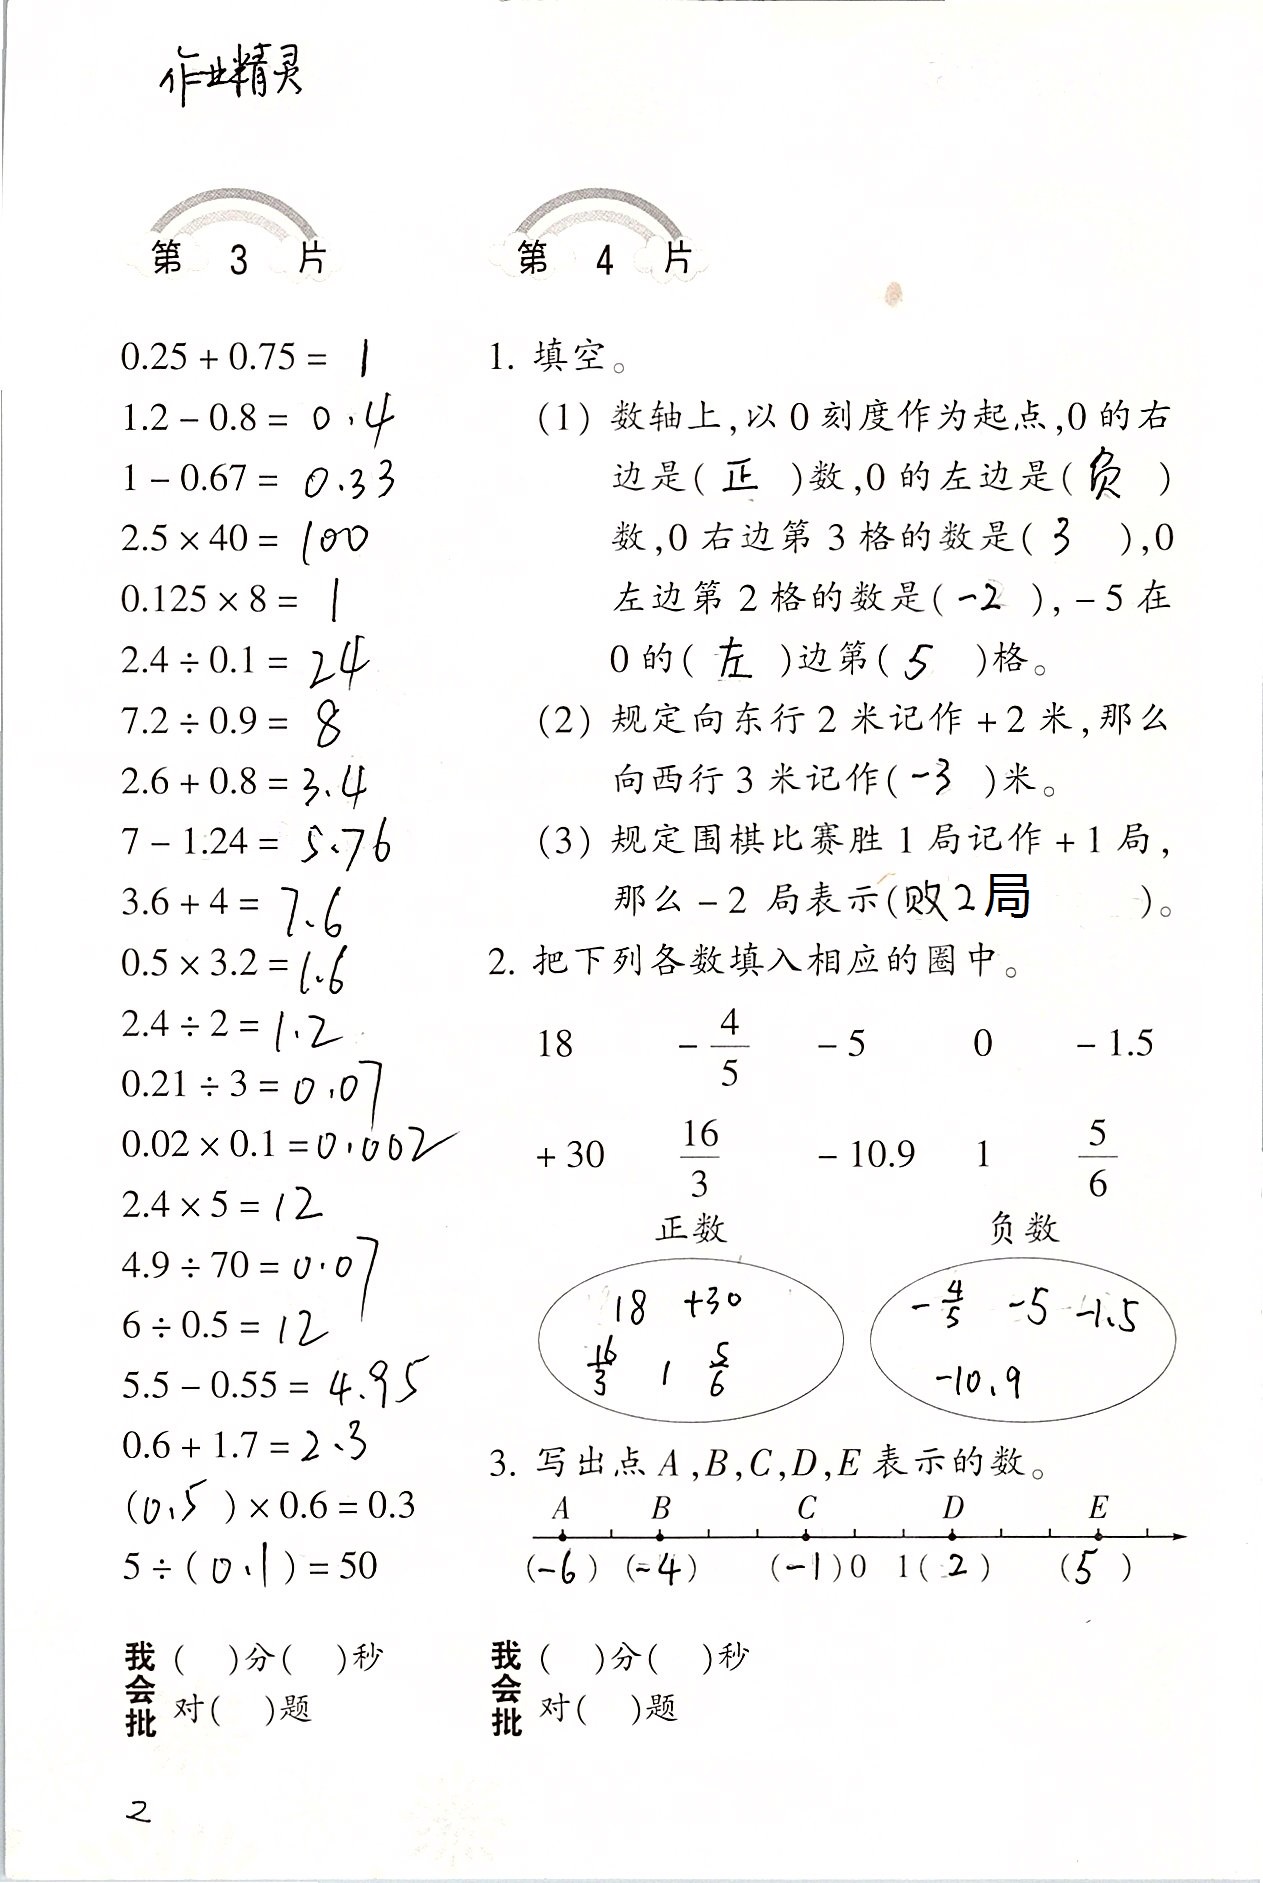 作业精灵
第 3 片
0.25 + 0.75 = 1
1.2 - 0.8 = 0.4
1 - 0.67 = 0.33
2.5 × 40 = 100
0.125 × 8 = 1
2.4 ÷ 0.1 = 24
7.2 ÷ 0.9 = 8
2.6 + 0.8 = 3.4
7 - 1.24 = 5.76
3.6 + 4 = 7.6
0.5 × 3.2 = 1.6
2.4 ÷ 2 = 1.2
0.21 ÷ 3 = 0.07
0.02 × 0.1 = 0.002
2.4 × 5 = 12
4.9 ÷ 70 = 0.07
6 ÷ 0.5 = 12
5.5 - 0.55 = 4.95
0.6 + 1.7 = 2.3
(0.5) × 0.6 = 0.3
5 ÷ (0.1) = 50
我会批
( )分( )秒
对( )题
第 4 片
1. 填空。
(1) 数轴上,以0刻度作为起点,0的右
边是( 正 )数,0的左边是( 负 )
数,0右边第3格的数是( 3 ),0
左边第2格的数是( -2 ), -5在
0的( 左 )边第( 5 )格。
(2) 规定向东行2米记作+2米,那么
向西行3米记作( -3 )米。
(3) 规定围棋比赛胜1局记作+1局,
那么-2局表示(败2局 )。
2. 把下列各数填入相应的圈中。
18 -4/5 -5 0 -1.5
+30 16/3 -10.9 1 5/6
正数 负数
18 +30 -4/5 -5 -1.5
16/3 1 5/6 -10.9
3. 写出点A,B,C,D,E表示的数。
A B C D E
(-6) (-4) (-1) 0 1 (2) (5)
我会批
( )分( )秒
对( )题
2